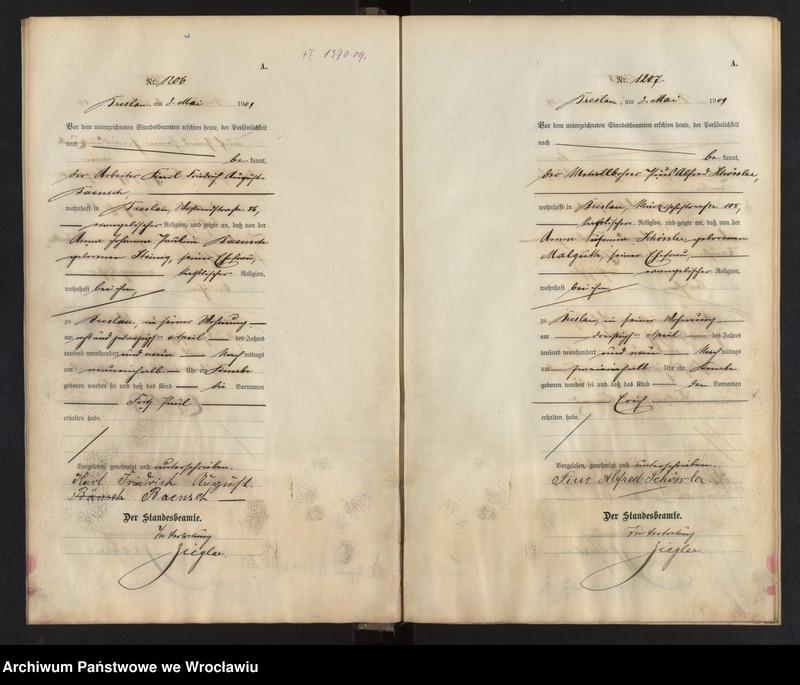 +I 1370.09.
A.
Nr. 1206
Breslau, am 3. Mai 1909
Vor dem unterzeichneten Standesbeamten erschien heute, der Persönlichkeit
nach
be kannt,
der Arbeiter Karl Friedrich August
Baensch
wohnhaft in Breslau, 56,
evangelischer Religion, und zeigte an, daß von der
Anna Johanna Pauline Baensch
geborenen seiner Ehefrau,
katholischer Religion,
wohnhaft bei ihm,
zu Breslau, in seiner Wohnung
am acht und zwanzigsten April des Jahres
tausend neunhundert und neun Nachmittags
um neuneinhalb Uhr ein Knabe
geboren worden sei und daß das Kind die Vornamen
Fritz Paul
erhalten habe.
Vorgelesen, genehmigt und unterschrieben.
Karl Friedrich August
Bänsch Baensch
Der Standesbeamte.
In Vertretung
Ziegler.
A.
Nr. 1207.
Breslau, am 3. Mai 1909
Vor dem unterzeichneten Standesbeamten erschien heute, der Persönlichkeit
nach
be kannt,
der Metallbohrer Pius Alfred Schössler,
wohnhaft in Breslau, 105,
katholischer Religion, und zeigte an, daß von der
Anna Susanna Schössler geborenen
seiner Ehefrau,
evangelischer Religion,
wohnhaft bei ihm,
zu Breslau, in seiner Wohnung
am dreißigsten April des Jahres
tausend neunhundert und neun Nachmittags
um zweieinhalb Uhr ein Knabe
geboren worden sei und daß das Kind den Vornamen
Erich
erhalten habe.
Vorgelesen, genehmigt und unterschrieben.
Pius Alfred Schössler.
Der Standesbeamte.
In Vertretung
Ziegler.
Archiwum Państwowe we Wrocławiu